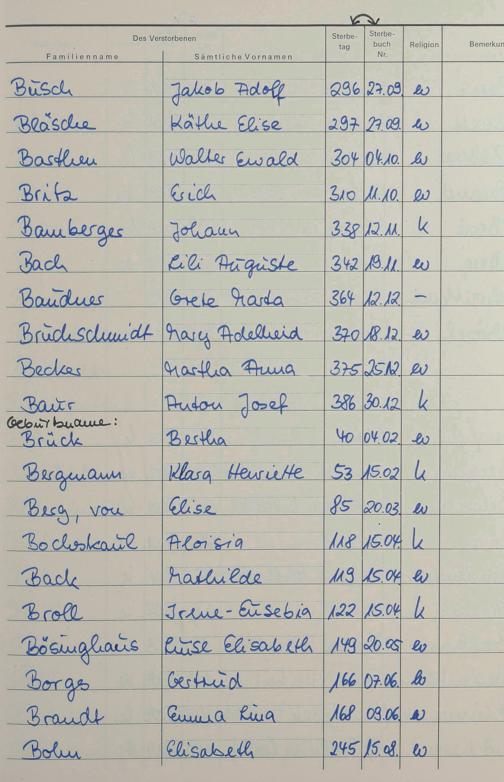 Des Verstorbenen
Sterbe-
tag
Sterbe-
buch
Nr.
Religion
Bemerkun
Familienname
Sämtliche Vornamen
Busch Jakob Adolf 296 27.09. ev
Bläsche Käthe Elise 297 27.09. ev
Barthen Walter Ewald 304 04.10. ev
Britz Erich 310 11.10. ev
Bamberger Johann 338 12.11. k
Bach Lili Auguste 342 19.11. ev
Baudner Grete Marta 364 12.12 –
Bruchschmidt Mary Adelheid 370 18.12 ev
Becker Martha Anna 375 25.12 ev
Baur Anton Josef 386 30.12 k
Geburtsname:
Brück Bertha 40 04.02 ev
Bergmann Klara Henriette 53 15.02 k
Berg, von Elise 85 20.03 ev
Aloisia 118 15.04. k
Back Mathilde 119 15.04 ev
Broll Irene-Eusebia 122 15.04. k
Bösinghaus Luise Elisabeth 149 20.05 ev
Borgs Gertrud 166 07.06. ev
Brandt Emma Lina 168 09.06. ev
Bohn Elisabeth 245 15.08. ev